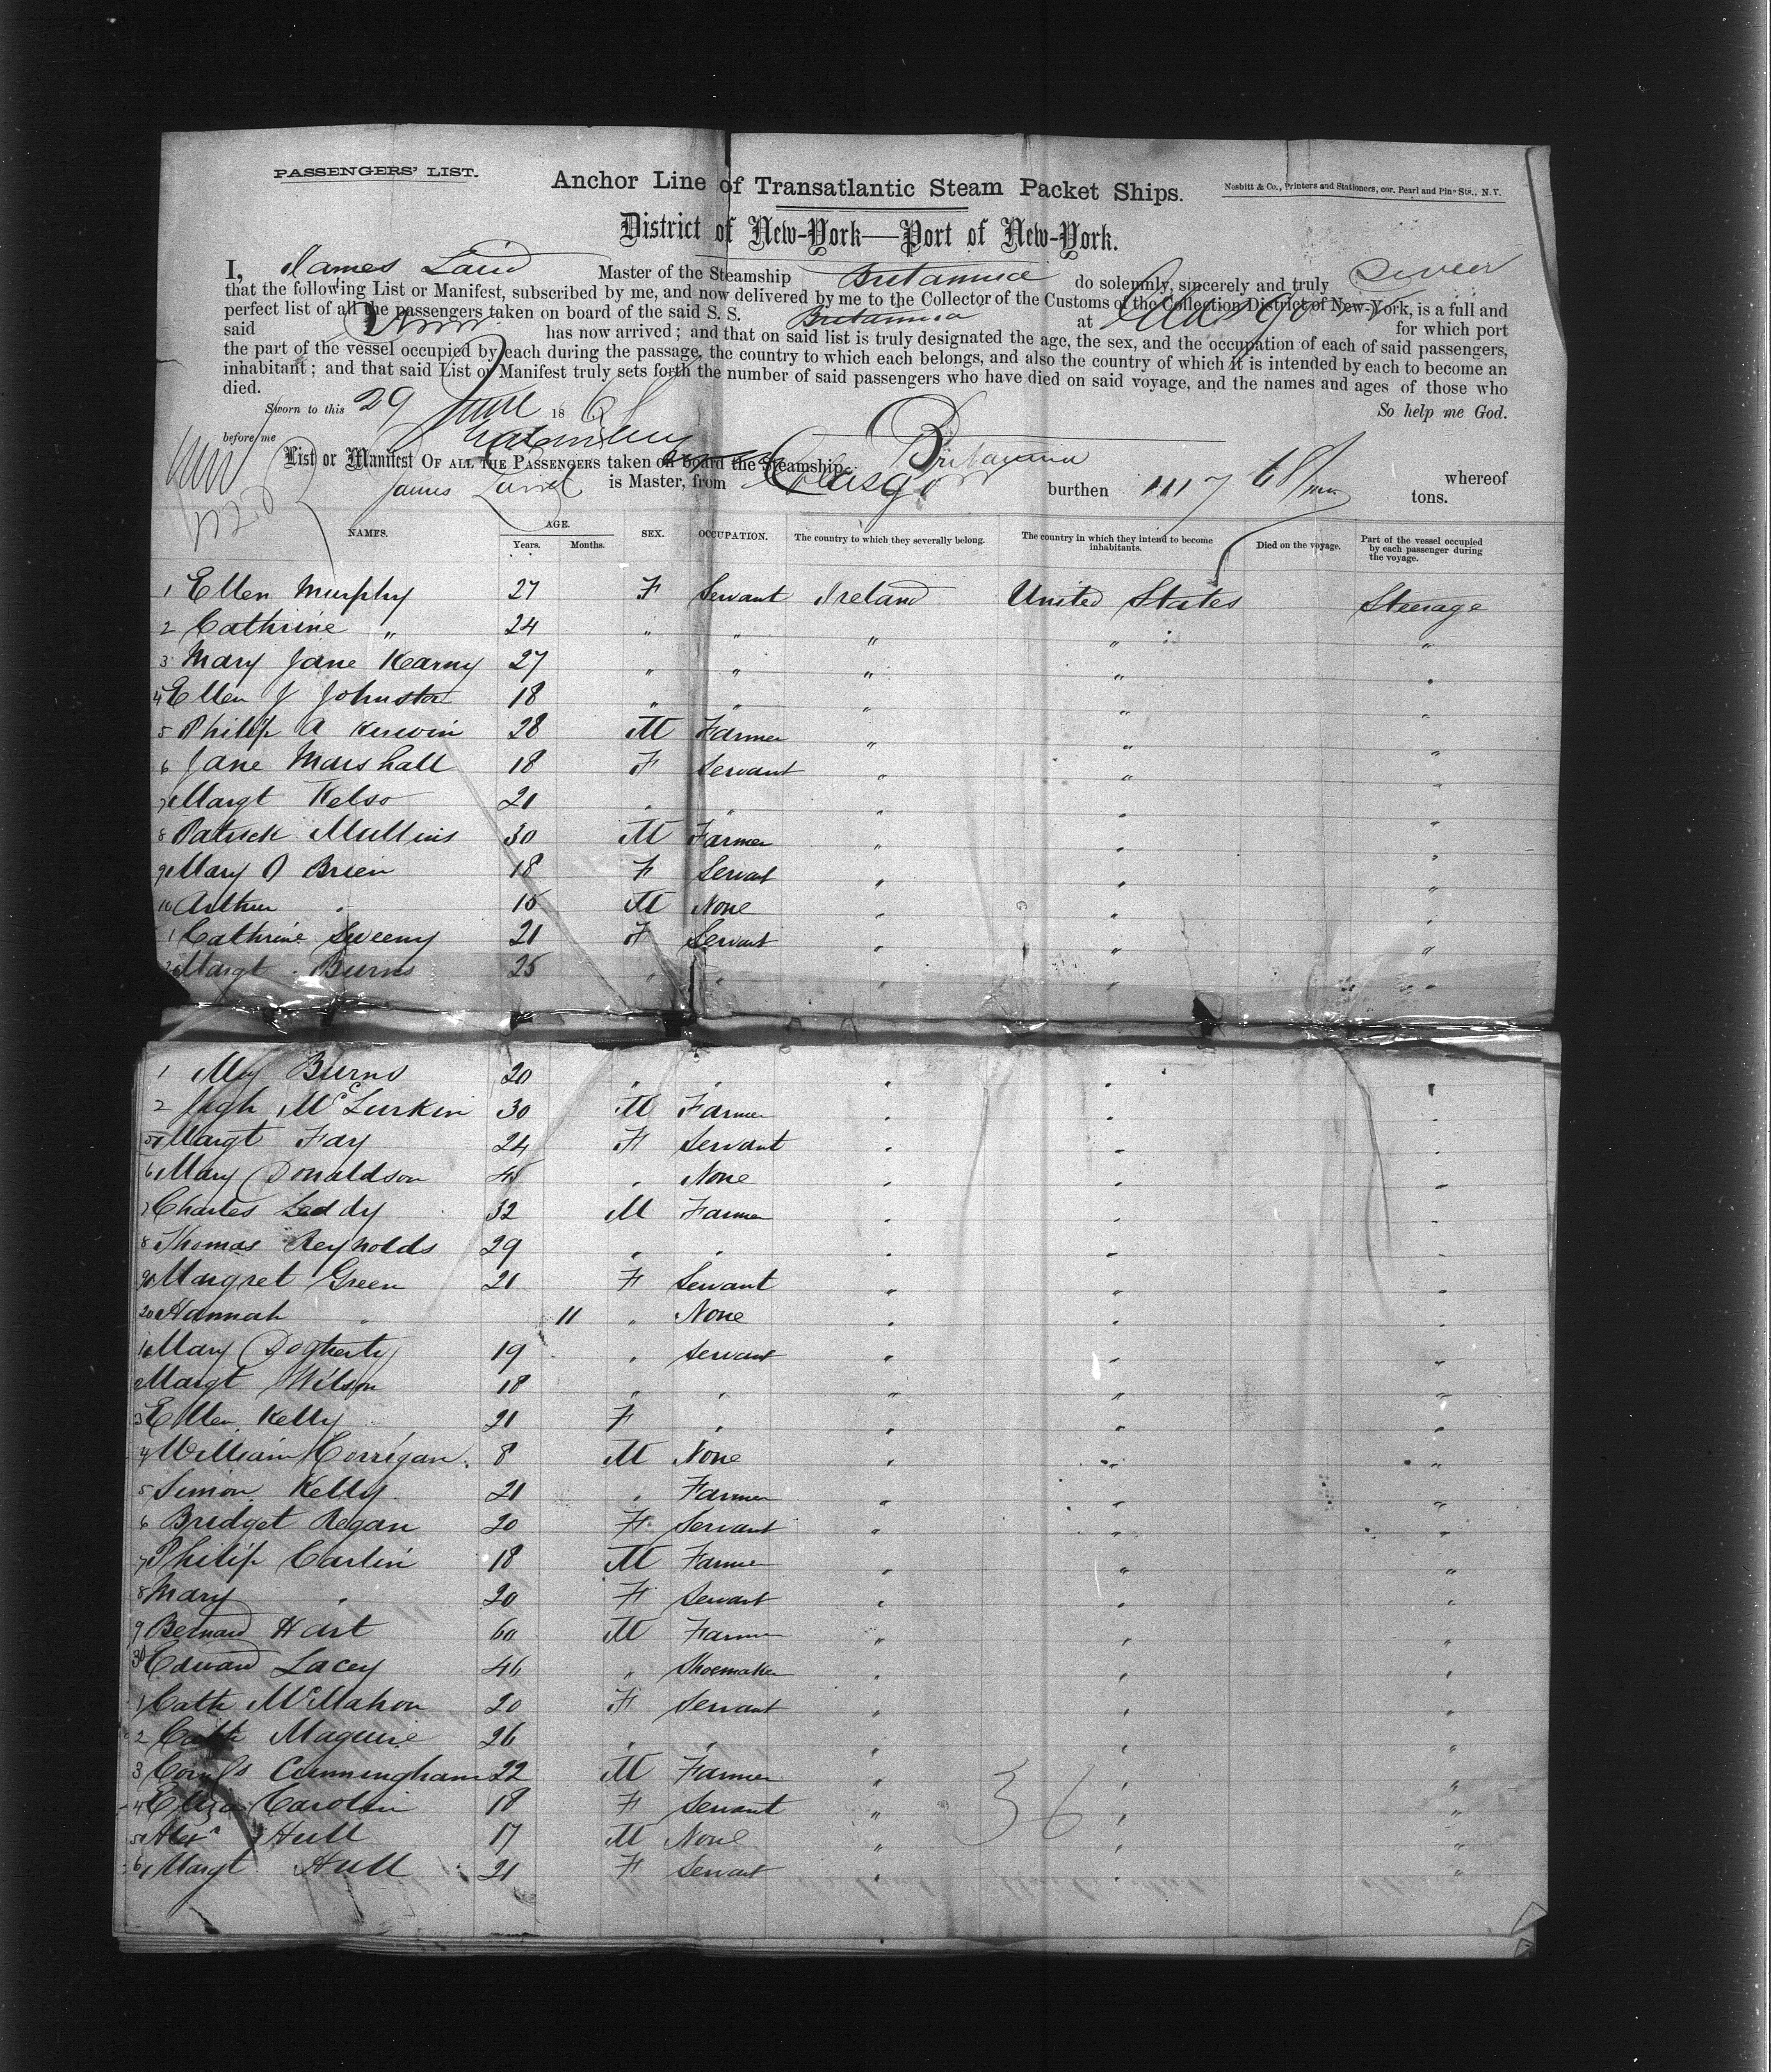 PASSENGERS' LIST.
Anchor Line of Transatlantic Steam Packet Ships.
Nesbitt & Co., Printers and Stationers, cor. Pearl and Pine Sts., N.Y.
District of New-York—Port of New-York.
I, James Laird Master of the Steamship Britannia do solemnly, sincerely and truly Swear
that the following List or Manifest, subscribed by me, and now delivered by me to the Collector of the Customs of the Collection District of New-York, is a full and
perfect list of all the passengers taken on board of the said S. S. Britannia at Glasgow for which port
said has now arrived; and that on said list is truly designated the age, the sex, and the occupation of each of said passengers,
the part of the vessel occupied by each during the passage, the country to which each belongs, and also the country of which it is intended by each to become an
inhabitant; and that said List or Manifest truly sets forth the number of said passengers who have died on said voyage, and the names and ages of those who
died. So help me God.
Sworn to this 29 June 186
before me
List or Manifest OF ALL THE PASSENGERS taken on board the Steamship Britannia whereof
James Laird is Master, from Glasgow burthen 1117 tons.
NAMES. AGE. Years. Months. SEX. OCCUPATION. The country to which they severally belong. The country in which they intend to become inhabitants. Died on the voyage. Part of the vessel occupied by each passenger during the voyage.
1 Ellen Murphy 27 F Servant Ireland United States Steerage
2 Cathrine " 24 " " " " "
3 Mary Jane Kearny 27 " " " " "
4 Ellen J Johnston 18 " " " " "
5 Philip A Kerwin 28 M Farmer " " "
6 Jane Marshall 18 F Servant " " "
7 Margt Kelso 21 " " " " "
8 Patrick Mullins 30 M Farmer " " "
9 Mary O Brien 18 F Servant " " "
10 Arthur " 15 M None " " "
1 Cathrine Sweeny 21 F Servant " " "
2 Margt Burns 25 " " " " "
1 My Burns 20 " " " " "
2 Hgh McLurkin 30 M Farmer " " "
5 Margt Fay 24 F Servant " " "
6 Mary Donaldson 45 " None " " "
7 Charles Leddy 32 M Farmer " " "
8 Thomas Reynolds 29 " " " " "
9 Margret Green 21 F Servant " " "
20 Hannah " 11 " None " " "
1 Mary Dogherty 19 " Servant " " "
2 Margt Wilson 18 " " " " "
3 Ellen Kelly 21 F " " " "
4 William Corrigan 8 M None " " "
5 Simon Kelly 21 " Farmer " " "
6 Bridget Regan 20 F Servant " " "
7 Philip Carlin 18 M Farmer " " "
8 Mary " 20 F Servant " " "
9 Bernard Hart 60 M Farmer " " "
30 Edward Lacey 46 " Shoemaker " " "
1 Cath McMahon 20 F Servant " " "
2 Cath Maguire 26 " " " " "
3 Cunningham 22 M Farmer " " "
4 Eliza Carolin 18 F Servant " " "
5 Alexr Hull 17 M None " " "
6 Margt Hull 21 F Servant " " "
36